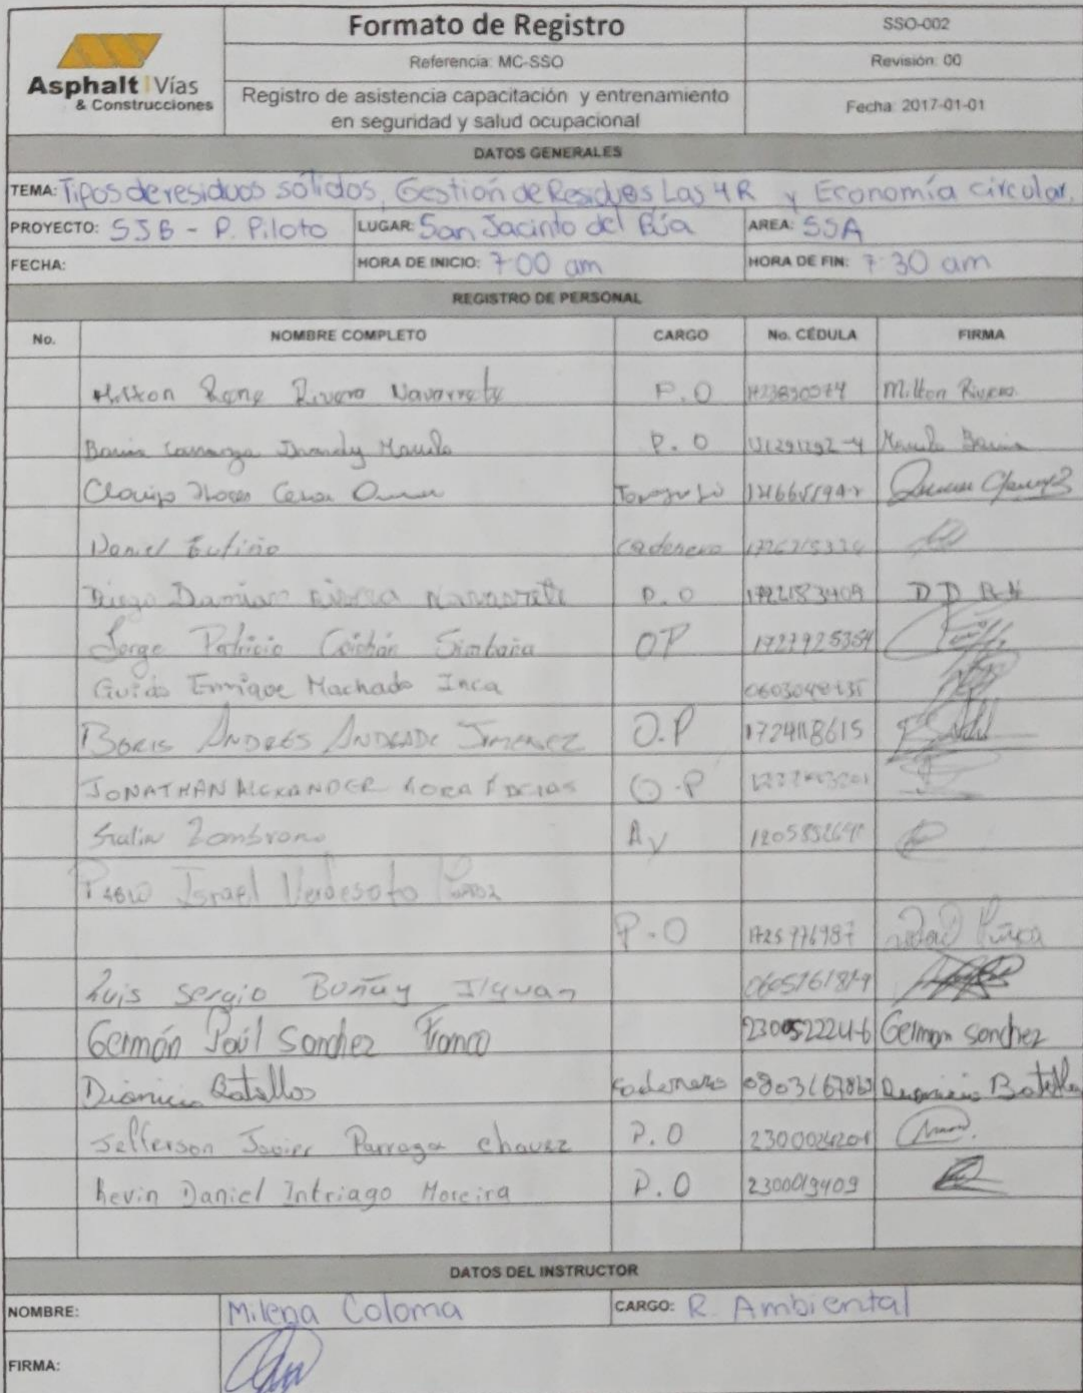 Asphalt Vías
& Construcciones
Formato de Registro
Referencia: MC-SSO
Registro de asistencia capacitación y entrenamiento
en seguridad y salud ocupacional
SSO-002
Revisión: 00
Fecha: 2017-01-01
DATOS GENERALES
TEMA: Tipos de residuos sólidos, Gestión de Residuos Las 4R y Economía circular.
PROYECTO: SJB - P. Piloto LUGAR: San Jacinto del Búa AREA: SSA
FECHA: HORA DE INICIO: 7:00 am HORA DE FIN: 7:30 am
REGISTRO DE PERSONAL
No. NOMBRE COMPLETO CARGO No. CÉDULA FIRMA
Milton Rene Rivera Navarrete P.O Milton Rivera
Manilo P.O 131291292-4
Cesar Omar
Daniel cadenero
Diego Damian Rivera Navarrete P.O D D R N
Jorge Patricio Simbaña OP 1727925354
Guido Enrique Machado Inca
BORIS ANDRÉS ANDRADE JIMENEZ O.P 1724118615
JONATHAN ALEXANDER O.P
Stalin Zambrano AV
Pablo Israel Verdesoto
P.O 1725976987
Luis Sergio Buñay Ilguan
Germán Paúl Sanchez Franco 230052224-6 German Sanchez
Dionicio Batallos cadenero Dionicio Batallos
Jefferson Javier Parraga Chavez P.O 2300024201
Kevin Daniel Intriago Moreira P.O 2300019409
DATOS DEL INSTRUCTOR
NOMBRE: Milena Coloma CARGO: R. Ambiental
FIRMA: